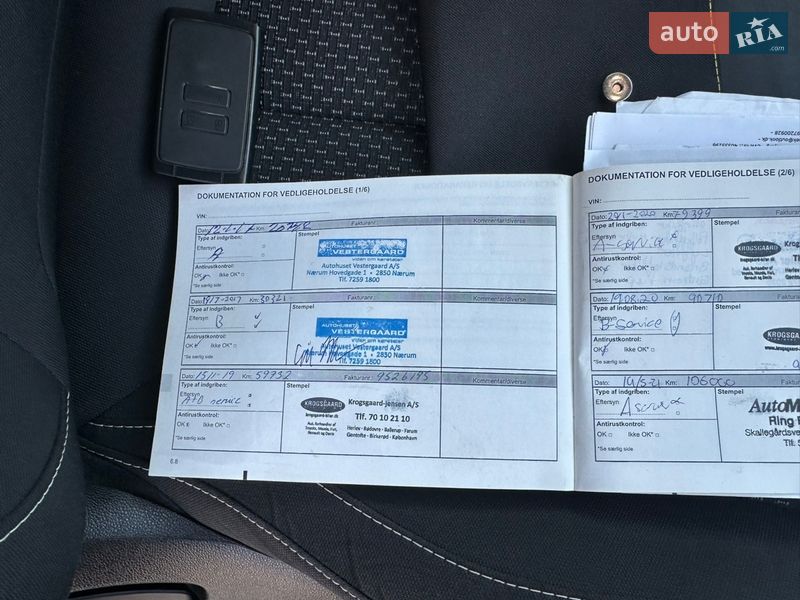 auto RIA
.com
DOKUMENTATION FOR VEDLIGEHOLDELSE (1/6)
VIN:
Dato: Km: Fakturanr.: Kommentar/diverse
Type af indgriben: Stempel
Eftersyn
A
Antirustkontrol:
OK Ikke OK*:
*Se særlig side
AUTOHUSET
VESTERGAARD
viden om køretøjer
Autohuset Vestergaard A/S
Nærum Hovedgade 1 • 2850 Nærum
Tlf. 7259 1800
Dato: Km: 30321 Fakturanr.: Kommentar/diverse
Type af indgriben: Stempel
Eftersyn
B
Antirustkontrol:
OK Ikke OK*:
*Se særlig side
AUTOHUSET
VESTERGAARD
viden om køretøjer
Autohuset Vestergaard A/S
Nærum Hovedgade 1 • 2850 Nærum
Tlf. 7259 1800
Dato: 15/11-19 Km: 59732 Fakturanr.: 9526195 Kommentar/diverse
Type af indgriben: Stempel
Eftersyn
A+B service
Antirustkontrol:
OK Ikke OK*:
*Se særlig side
KROGSGAARD
krogsgaard-biler.dk
Aut. forhandler af
Toyota, Mazda, Fiat,
Renault og Dacia
Krogsgaard-Jensen A/S
Tlf. 70 10 21 10
Herlev - Rødovre - Ballerup - Farum
Gentofte - Birkerød - København
6.8
DOKUMENTATION FOR VEDLIGEHOLDELSE (2/6)
VIN:
Dato: Km: 79399
Type af indgriben: Stempel
Eftersyn
A-service
Antirustkontrol:
OK Ikke OK*:
*Se særlig side
KROGSGAARD
krogsgaard-biler.dk
Dato: 19.08.20 Km: 90710
Type af indgriben: Stempel
Eftersyn
B-Service
Antirustkontrol:
OK Ikke OK*:
*Se særlig side
KROGSGAARD
Dato: Km: 106000
Type af indgriben: Stempel
Eftersyn
A service
Antirustkontrol:
OK Ikke OK*:
*Se særlig side